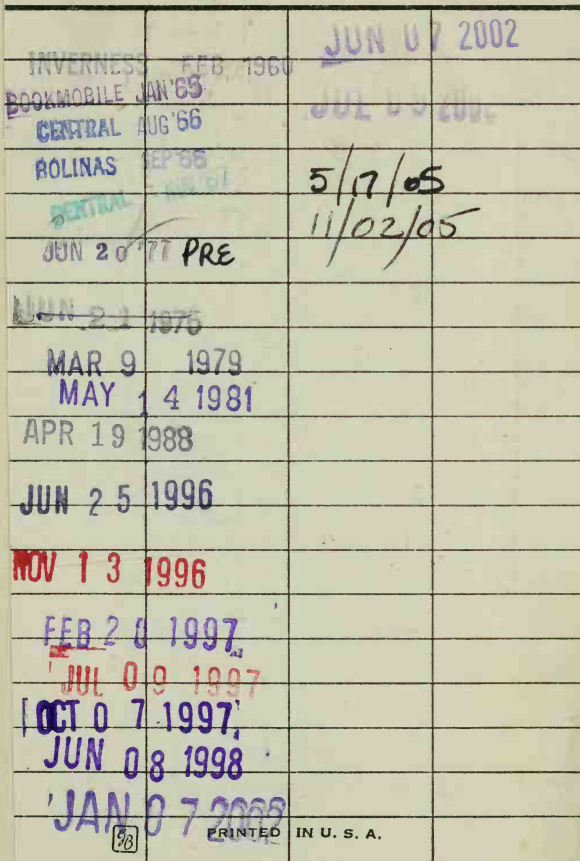 INVERNESS FEB 1960
BOOKMOBILE JAN'65
CENTRAL AUG'66
BOLINAS SEP'66
CENTRAL
JUN 20 '77 PRE
JUN 21 1976
MAR 9 1979
MAY 14 1981
APR 19 1988
JUN 25 1996
NOV 13 1996
FEB 20 1997
JUL 09 1997
OCT 07 1997
JUN 08 1998
JAN 07 2002
PRINTED IN U. S. A.
JUN 07 2002
5/17/05
11/02/05